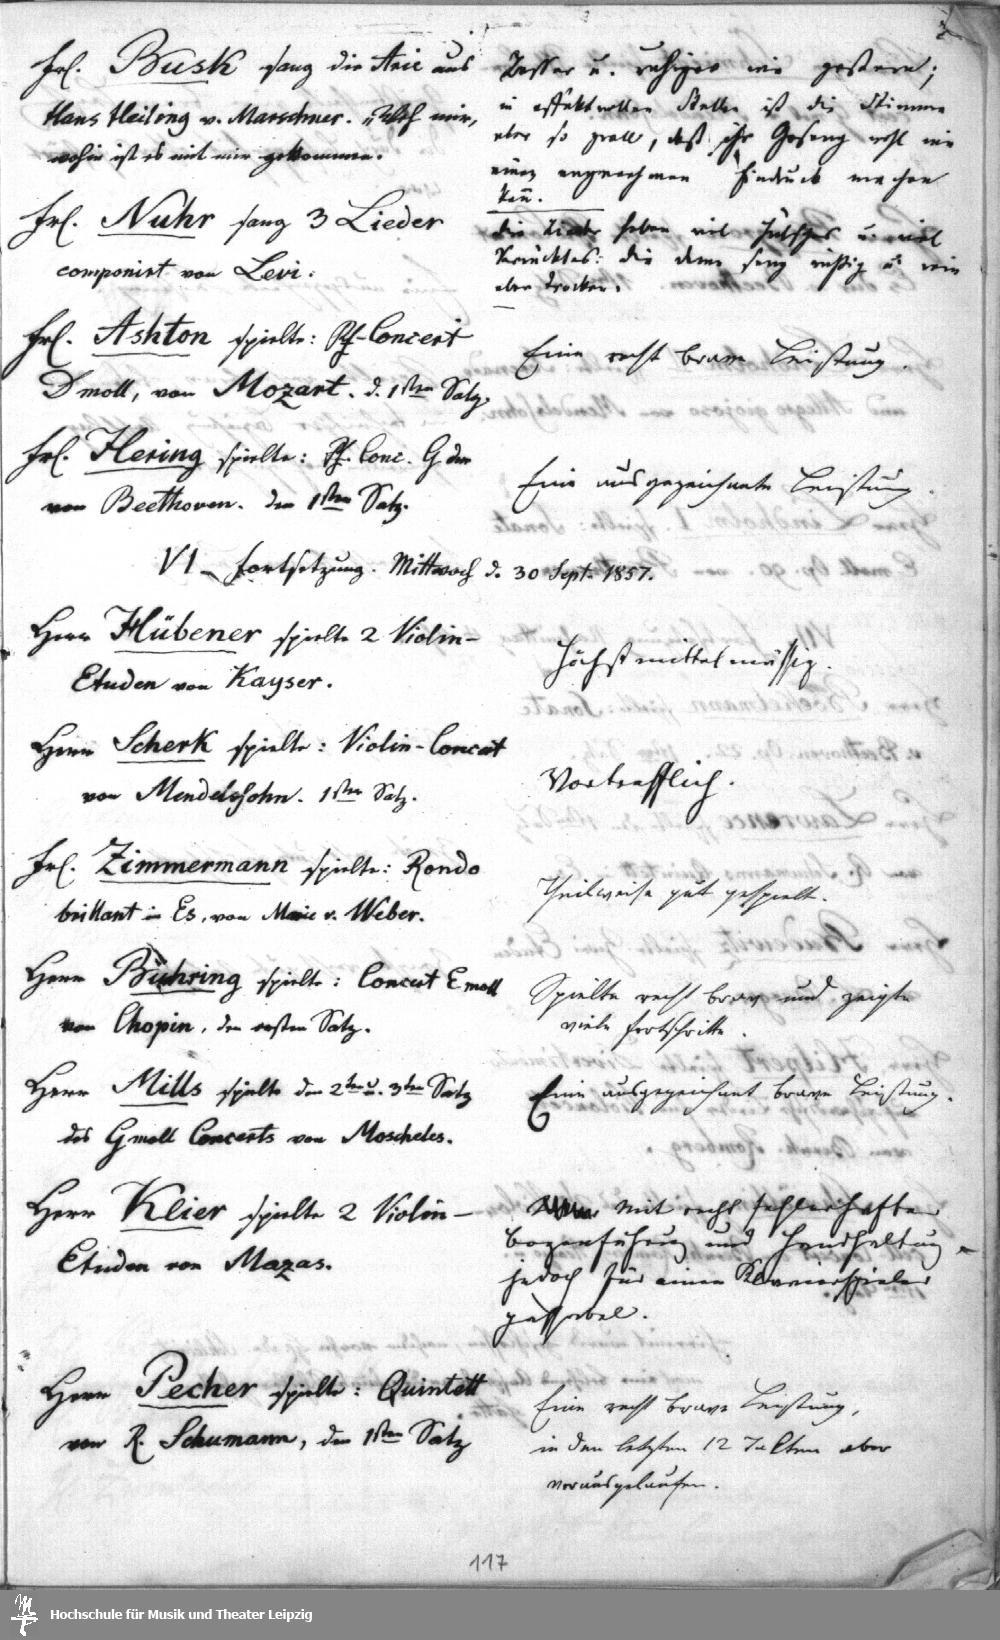 Frl. Busk sang die Arie aus
Hans Heiling v. Marschner. „Weh mir,
wohin ist es mit mir gekommen.
Besser u. ruhiger wie gestern;
in effektvollen Stellen ist die Stimme
aber so grell, daß ihr Gesang wohl nie
einen angenehmen Eindruck machen
kan̄.
Frl. Nuhr sang 3 Lieder
componirt von Levi.
die Lieder haben viel Hübsches u. viel
Verrücktes: die dame sang ruhig u. rein
aber trocken.
Frl. Ashton spielte: Pf-Concert
D moll, von Mozart. d. 1sten Satz.
Eine recht brave Leistung.
Frl. Hering spielte: Pf. Conc. G dur
von Beethoven. den 1sten Satz.
Eine ausgezeichnete Leistung.
VI Fortsetzung. Mittwoch d. 30 Sept. 1857.
Herr Hübener spielte 2 Violin-
Etuden von Kayser.
Höchst mittelmässig.
Herr Scherk spielte: Violin-Concert
von Mendelssohn. 1sten Satz.
Vortrefflich.
Frl. Zimmermann spielte: Rondo
brillant in Es, von Marie v. Weber.
Theilweise gut gespielt.
Herr Bühring spielte: Concert E moll
von Chopin, den ersten Satz.
Spielte recht brav und zeigte
viele Fortschritte.
Herr Mills spielte den 2ten u. 3ten Satz
des G moll Concerts von Moscheles.
Eine ausgezeichnet brave Leistung.
Herr Klier spielte 2 Violin-
Etuden von Mazas.
Mit recht fehlerhafter
Bogenführung und Handhaltung
jedoch für einen Klavierspieler
passabel.
Herr Pecher spielte: Quintett
von R. Schumann, den 1sten Satz
Eine recht brave Leistung,
in den letzten 12 Takten aber
vorausgelaufen.
117
Hochschule für Musik und Theater Leipzig